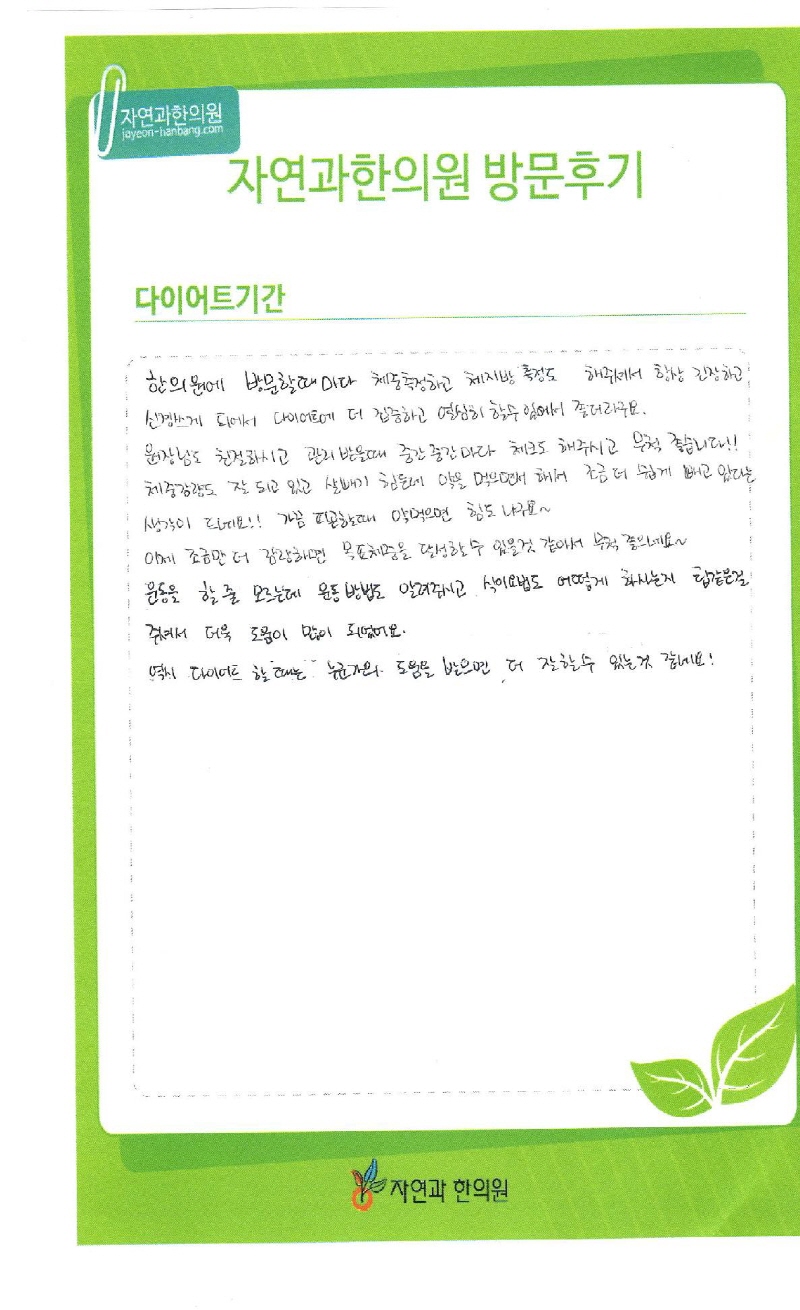 자연과한의원
jayeon-hanbang.com
자연과한의원 방문후기
다이어트기간
한의원에 방문할때마다 체중측정하고 체지방 측정도 해주셔서 항상 긴장하고
신경쓰게 되어서 다이어트에 더 집중하고 열심히 할수있어서 좋더라구요.
원장님도 친절하시고 관리받을때 중간중간마다 체크도 해주시고 무척 좋습니다!!
체중감량도 잘 되고 있고 살빼기 힘든데 약을 먹으면서 해서 조금 더 쉽게 빼고 있다는
생각이 드네요!! 가끔 피곤할때 약먹으면 힘도 나구요~
이제 조금만 더 감량하면 목표체중을 달성할수 있을것 같아서 무척 좋으네요~
운동을 할 줄 모르는데 운동방법도 알려주시고 식이요법도 어떻게 하시는지 팁같은걸
주셔서 더욱 도움이 많이 되었어요.
역시 다이어트 할때는 누군가의 도움을 받으면 더 잘할수 있는것 같네요!
자연과 한의원